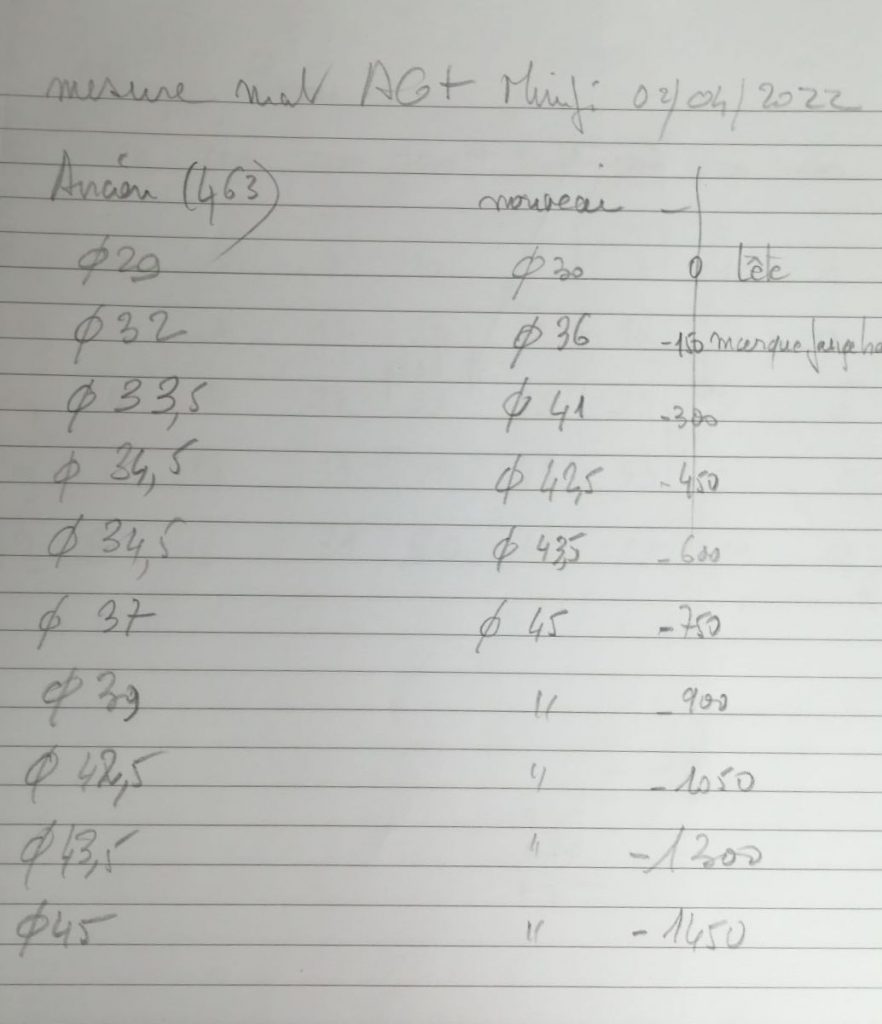 mesure mat AG+ Minji 02/04/2022
Ancien (463) nouveau -
φ29 φ30 0 tête
φ32 φ36 -150 marque
φ33,5 φ41 -300
φ34,5 φ42,5 -450
φ34,5 φ43,5 -600
φ37 φ45 -750
φ39 " -900
φ42,5 " -1050
φ43,5 " -1300
φ45 " -1450